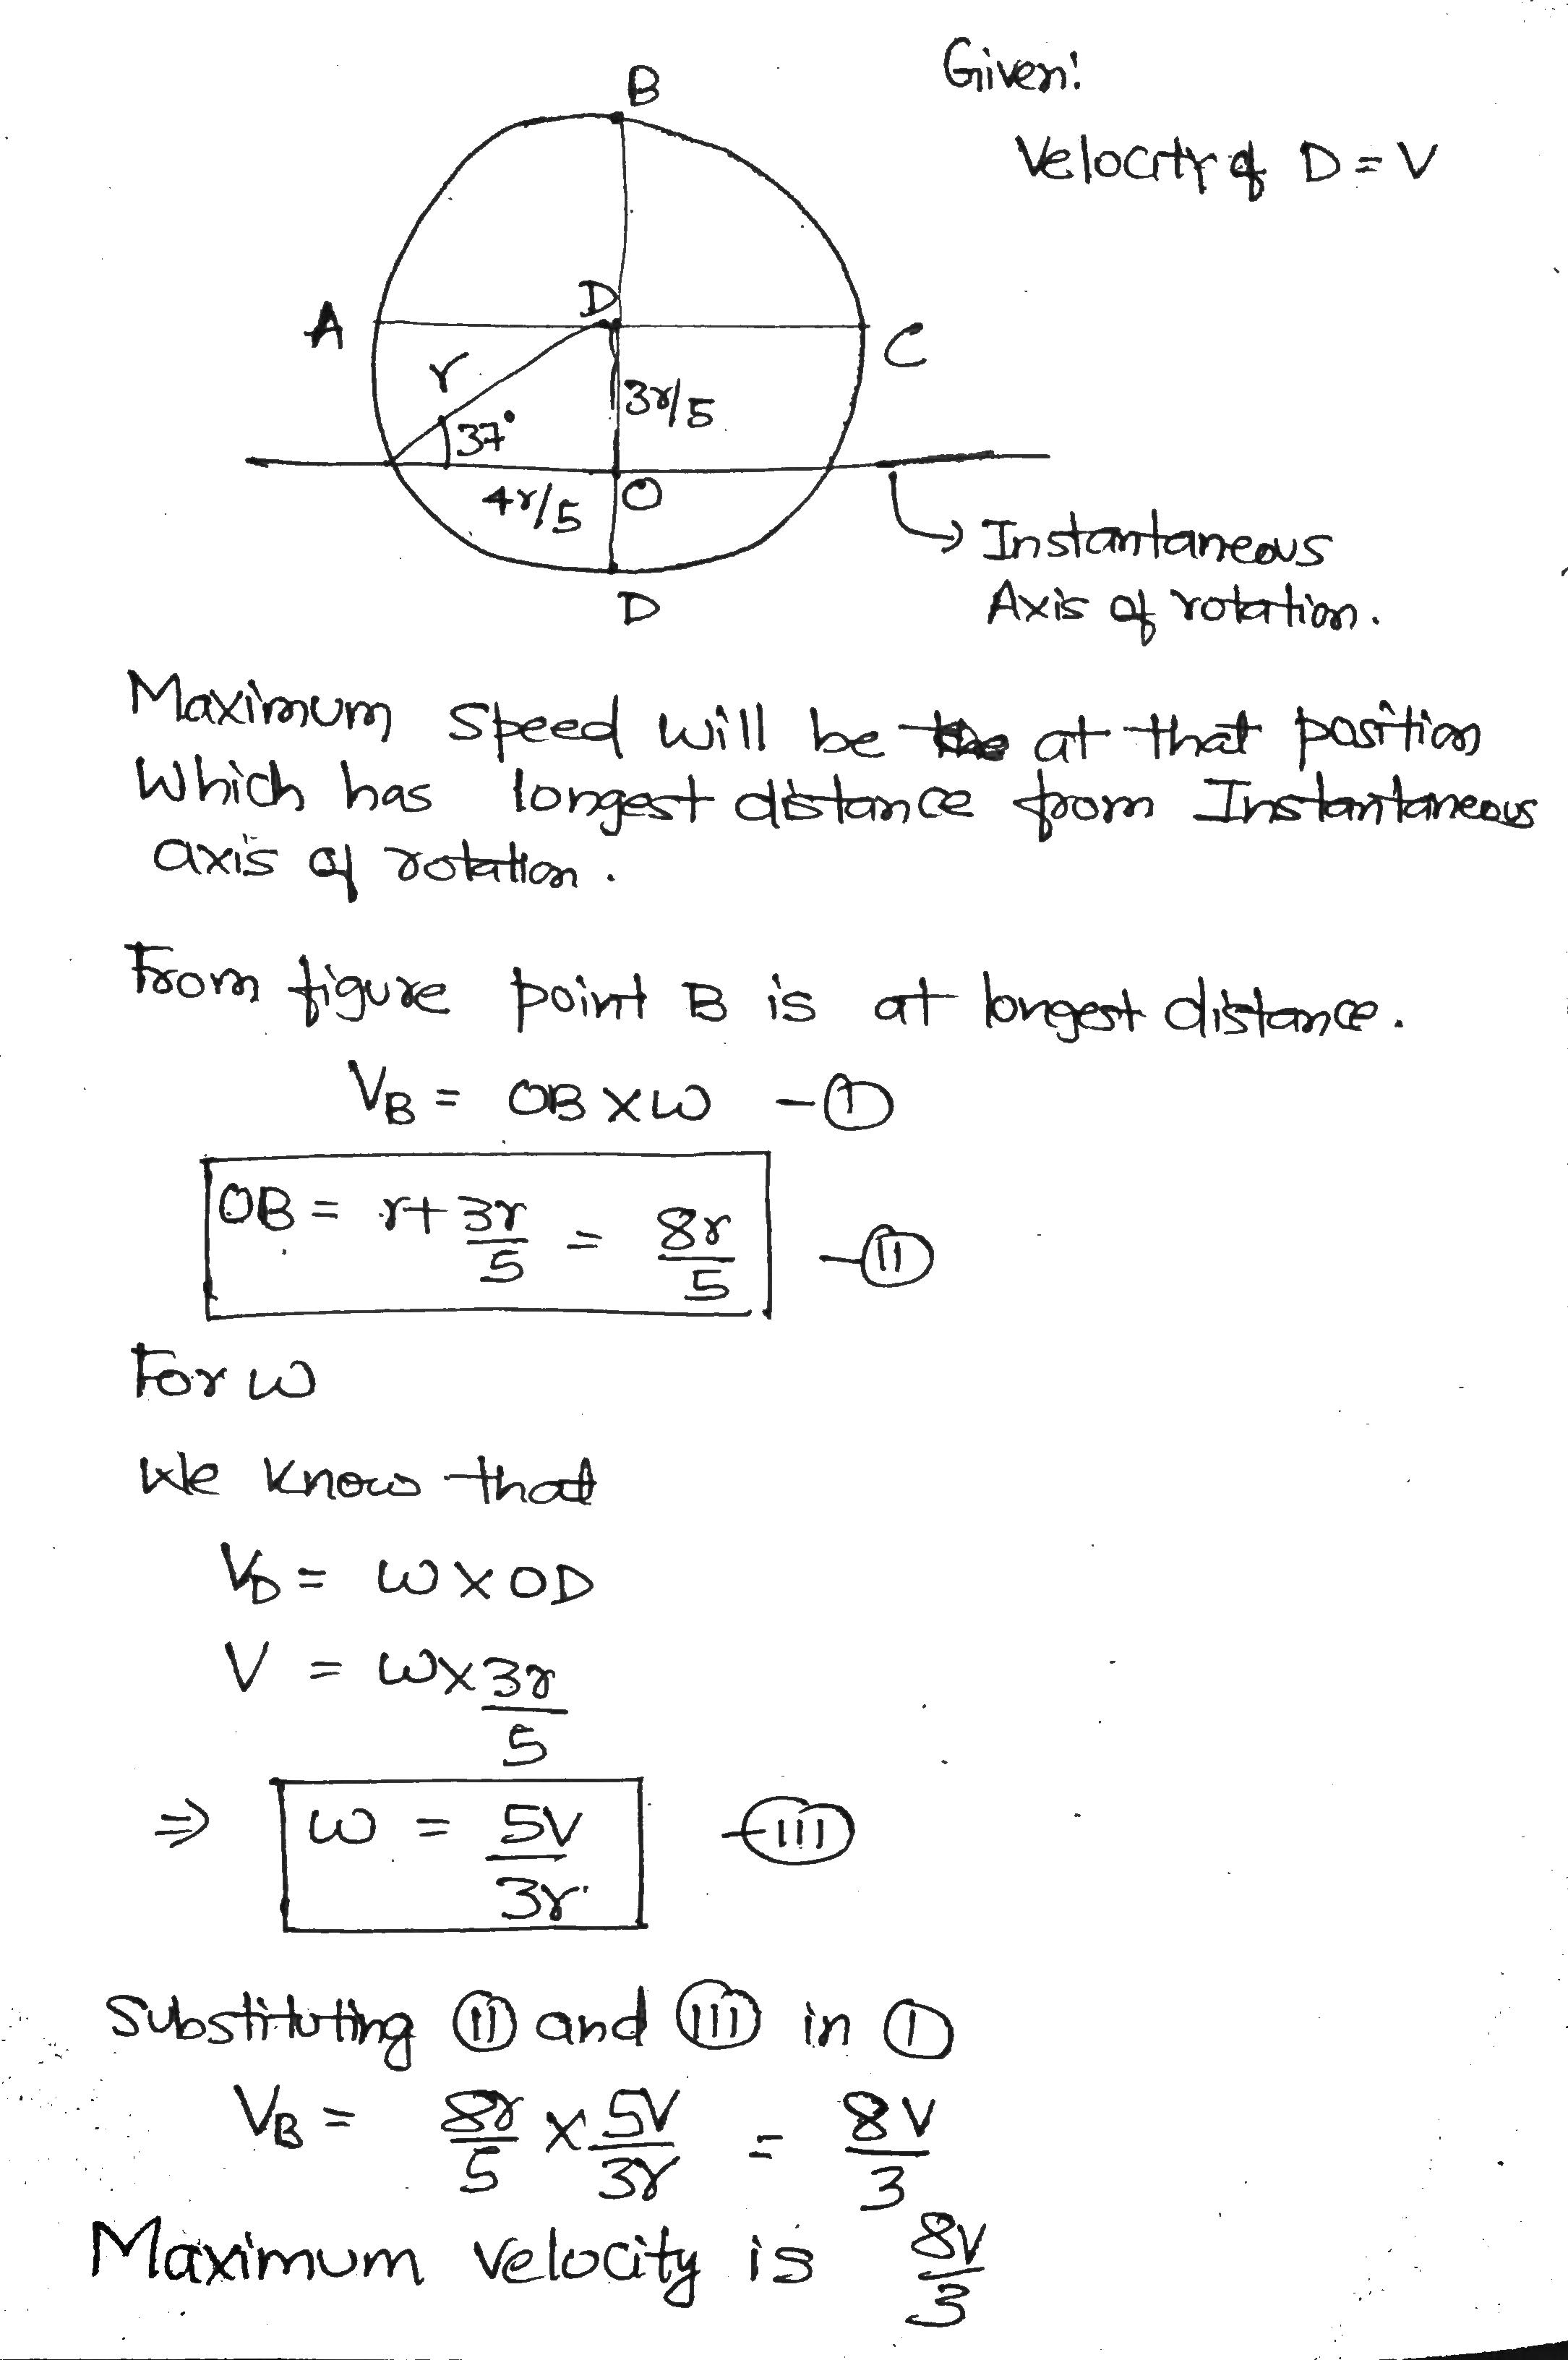 B
Given:
Velocity of D = V
D
A
C
r
3r/5
37°
4r/5
O
D
Instantaneous
Axis of rotation.
Maximum speed will be at that position
Which has longest distance from Instantaneous
axis of rotation.
From figure point B is at longest distance.
VB = OB × ω - (I)
OB = r + 3r/5 = 8r/5 - (II)
For ω
We know that
VD = ω × OD
V = ω × 3r/5
⇒ ω = 5V/3r - (III)
Substituting (II) and (III) in (I)
VB = 8r/5 × 5V/3r = 8V/3
Maximum velocity is 8V/3